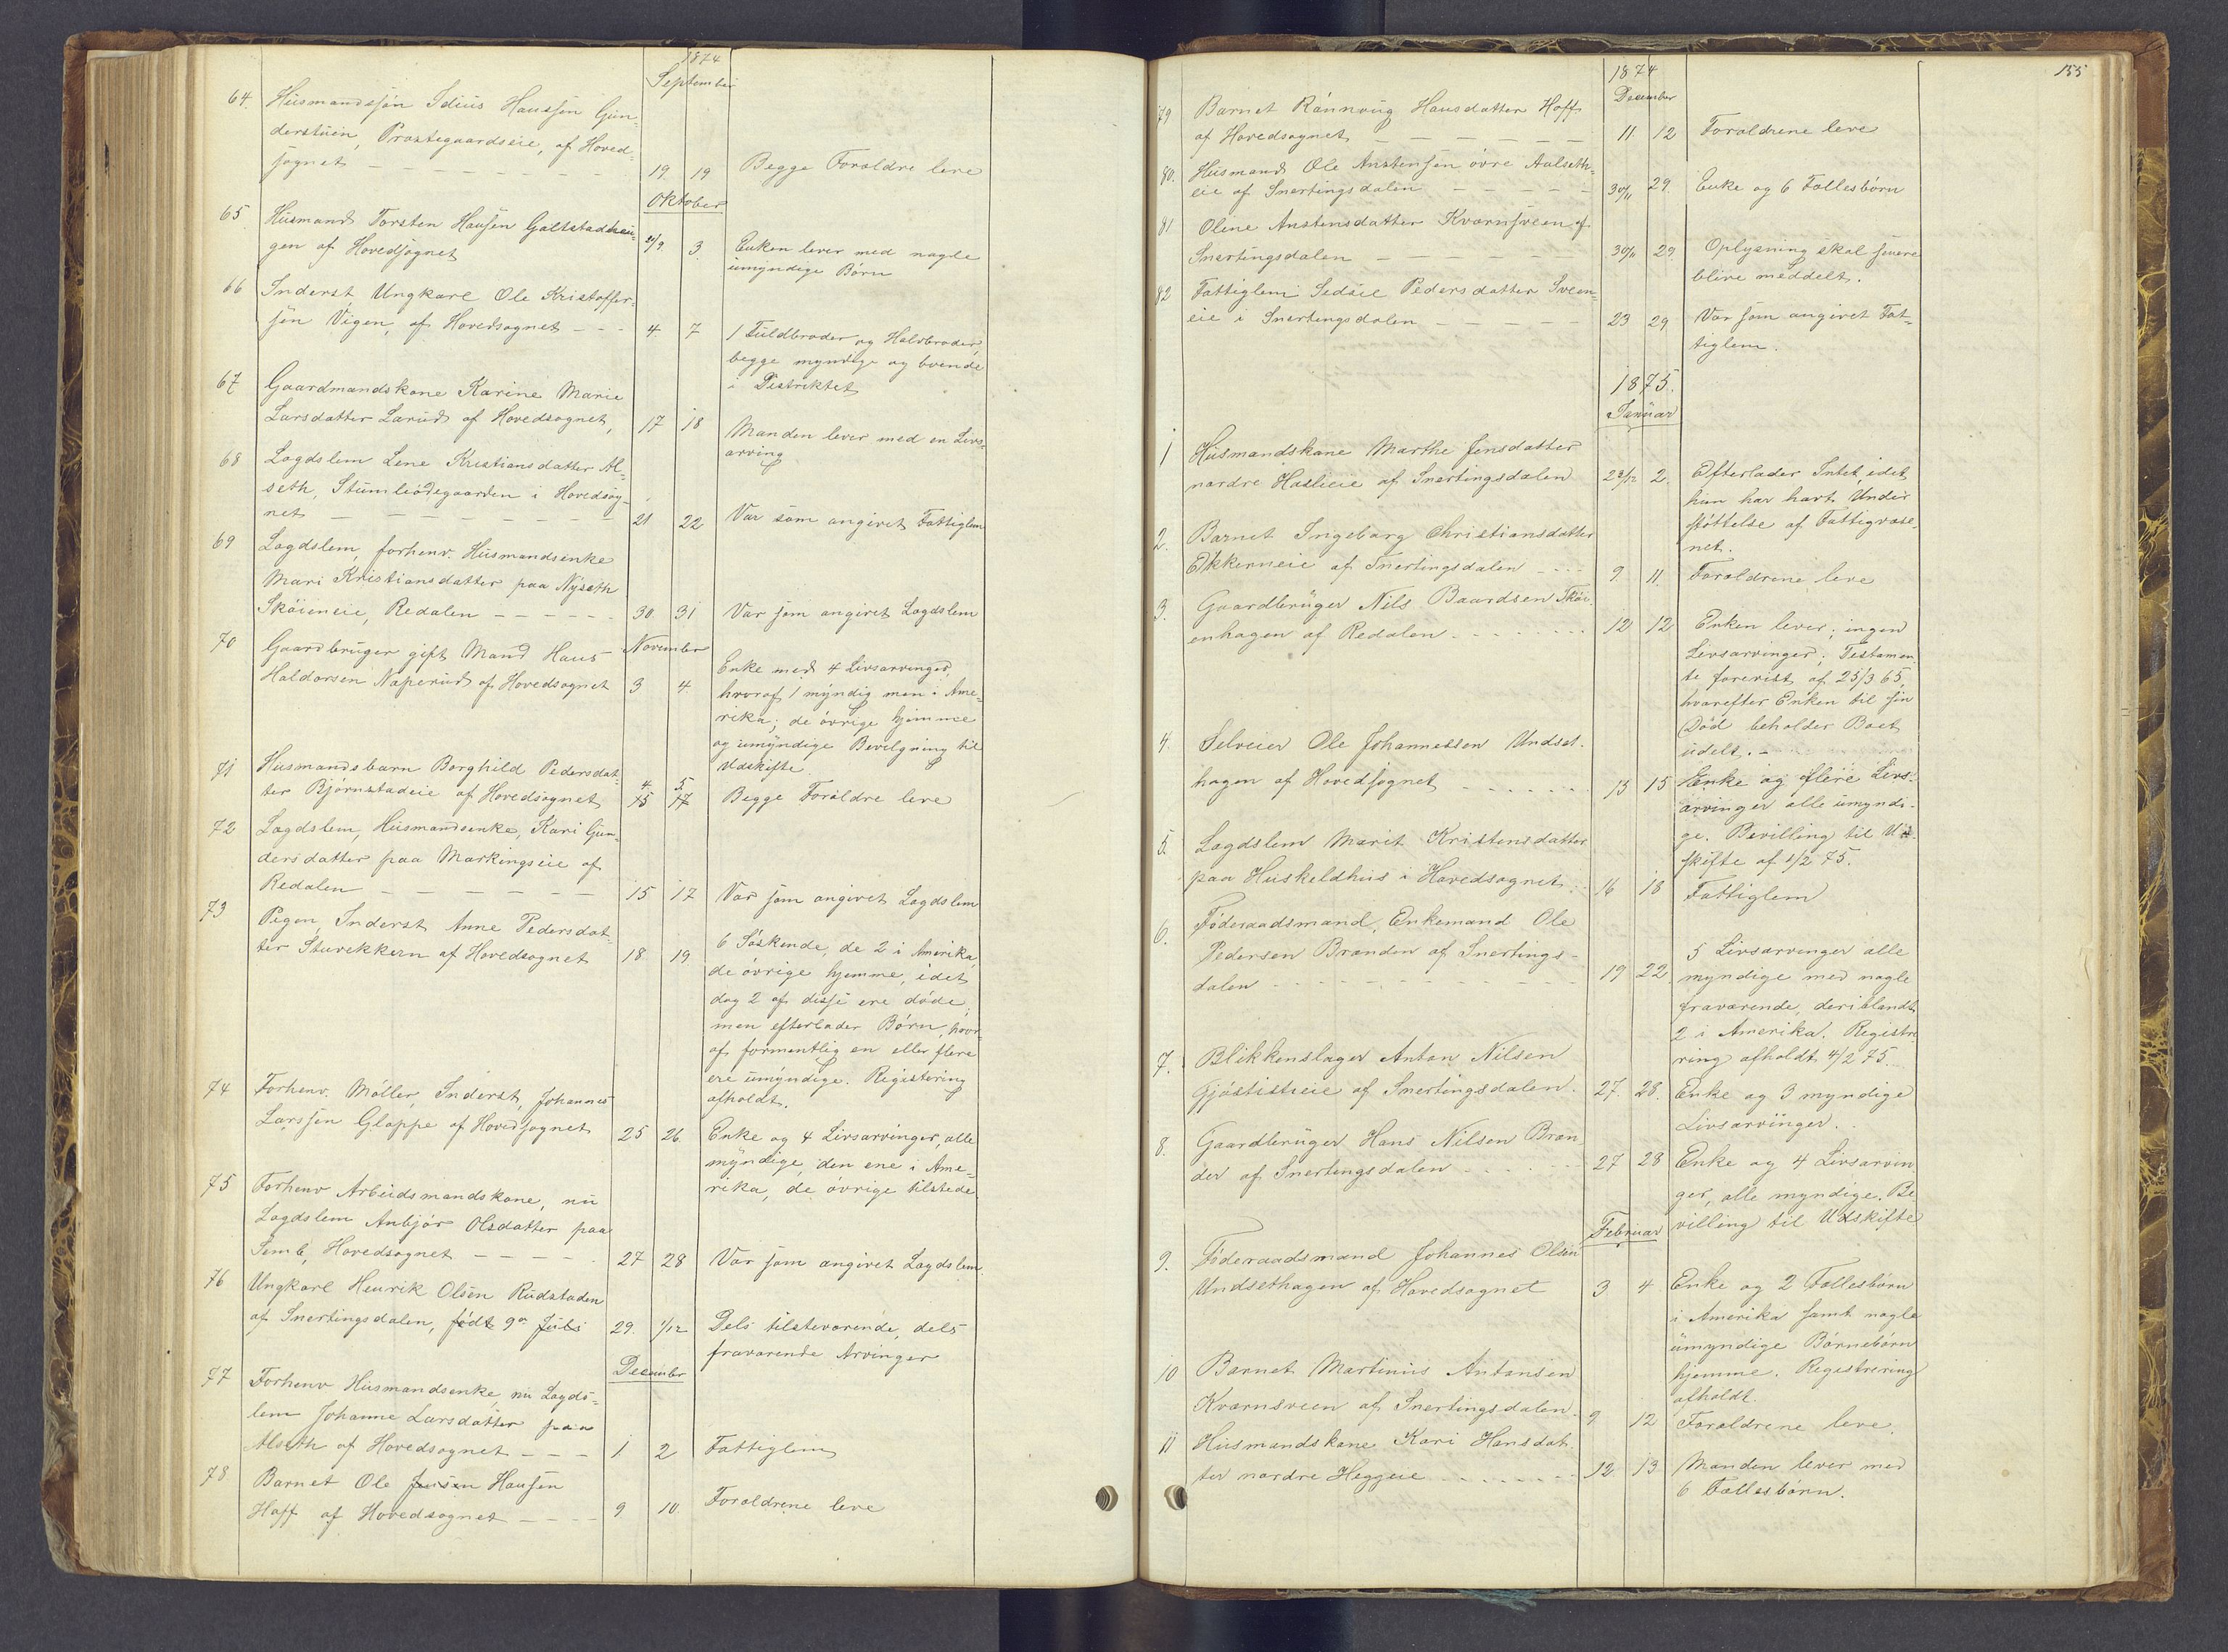 1874
September
64. Husmandssøn Idius Hansen Gun-
derstuen, Præstegaardseie, af Hoved-
sognet — 19. 19 Begge Forældre leve
Oktober
65 Husmand Torsten Hansen Galtstadhau-
gen af Hovedsognet 3. Enken lever med nogle
umyndige Børn
66 Inderst, Ungkarl Ole Kristoffer-
sen Vigen, af Hovedsognet — 4. 7 1 Fuldbroder og Halvbroder,
begge myndige og boende
i Distriktet
67 Gaardmandskone Karine Marie
Larsdatter Larud af Hovedsognet, 17 18 Manden lever med en Livs-
arving
68 Lægdslem Lene Kristiansdatter Al-
seth, Stumliødegaarden i Hovedsog-
net — 21 22 Var som angivet Fattiglem
69 Lægdslem, forhenv. Husmandsenke
Mari Kristiansdatter paa Nyseth
Skøieneie, Redalen — 30. 31 Var som angivet Lægdslem
November
70 Gaardbruger gift Mand Hans
Haldorsen Næperud af Hovedsognet 3 4. Enke med 4 Livsarvinger,
hvoraf 1 myndig men i Ame-
rika; de øvrige hjemme
og umyndige Bevilgning til
Udskifte.
71 Husmandsbarn Borghild Pedersdat-
ter Bjørnstadeie af Hovedsognet 4. 5. 15 17 Begge Forældre leve
72 Lægdslem, Husmandsenke, Kari Gun-
dersdatter paa Markingseie af
Redalen — 15 17 Var som angivet Lægdslem
73 Pigen, Inderst Anne Pedersdat-
ter Sturekkern af Hovedsognet 18. 19 6 Søskende, de 2 i Amerika,
de øvrige hjemme, idet
dog 2 af disse ere døde,
men efterlader Børn, hvor-
af formentlig en eller flere
ere umyndige. Registering
afholdt.
74 Forhenv. Møller, Inderst, Johannes
Larssen Gloppe af Hovedsognet 25 26. Enke og 4 Livsarvinger, alle
myndige, den ene i Ame-
rika, de øvrige tilstede
75 Forhenv Arbeidsmandskone, nu
Lægdslem Anbjør Olsdatter paa
Semb, Hovedsognet — 27 28 Var som angivet Lægdslem.
76 Ungkarl Henrik Olsen Rudstaden
af Snertingsdalen, født 9de Juli 29. 1/12 Dels tilstevarende, dels
fraværende Arvinger
December
77 Forhenv Husmandsenke, nu Lægds-
lem Johanne Larsdatter paa
Alseth af Hovedsognet — 1 2 Fattiglem
78 Barnet Ole Jensen Hansen
Hoff af Hovedsognet — 9 10. Forældrene leve
155
1874
December
79 Barnet Rønnoug Hansdatter Hoff
af Hovedsognet — 11. 12 Forældrene leve
80. Husmand Ole Anstensen øvre Aalseth-
eie af Snertingsdalen — 30/11 29. Enke og 6 Fællesbørn
81 Oline Anstensdatter Kværnsveen af
Snertingsdalen — 30/11 29. Oplysning skal senere
blive meddelt.
82 Fattiglem Sedsie Pedersdatter Sveen-
eie i Snertingsdalen — 23 29 Var som angivet Fat-
tiglem.
1875.
Januar
1 Husmandskone Marthe Jensdatter
nordre Haslieie af Snertingsdalen 23/12 2. Efterlader Intet, idet
hun har havt Under-
støttelse af Fattigvæse-
net.
2. Barnet Ingeborg Christiansdatter
Ekkerneie af Snertingsdalen — 9 11. Forældrene leve
3. Gaardbruger Nils Baardsen Skøi-
enhagen af Redalen — 12 12 Enken lever; ingen
Livsarvinger; Testamen-
te forevist af 25/3 65,
hvorefter Enken til sin
Død beholder Boet
udelt.
4. Selveier Ole Johannessen Undset-
hagen af Hovedsognet — 13 15 Enke og flere Livs-
arvinger alle umyndi-
ge. Bevilling til Ud-
skifte af 1/2 75.
5. Lægdslem Marit Kristensdatter
paa Huskeldhus i Hovedsognet. 16 18 Fattiglem
6. Føderaadsmand, Enkemand Ole
Pedersen Brænden af Snertings-
dalen — 19 22. 5 Livsarvinger alle
myndige med nogle
fraværende, deriblandt
2 i Amerika. Registre-
ring afholdt 4/2 75.
7. Blikkenslager Anton Nilsen
Gjøstistieie af Snertingsdalen. 27. 28. Enke og 3 myndige
Livsarvinger.
8. Gaardbruger Hans Nilsen Bræn-
der af Snertingsdalen — 27 28 Enke og 4 Livsarvin-
ger, alle myndige. Be-
villing til Udskifte
Februar
9. Føderaadsmand Johannes Olsen
Undsethagen af Hovedsognet 3 4 Enke og 2 Fællesbørn
i Amerika samt nogle
umyndige Børnebørn
hjemme. Registrering
afholdt.
10 Barnet Martinius Antonsen
Kværnsveen af Snertingsdalen. 9 12 Forældrene leve.
11 Husmandskone Kari Hansdat-
ter nordre Heggeie — 12 13 Manden lever med
6 Fællesbørn.